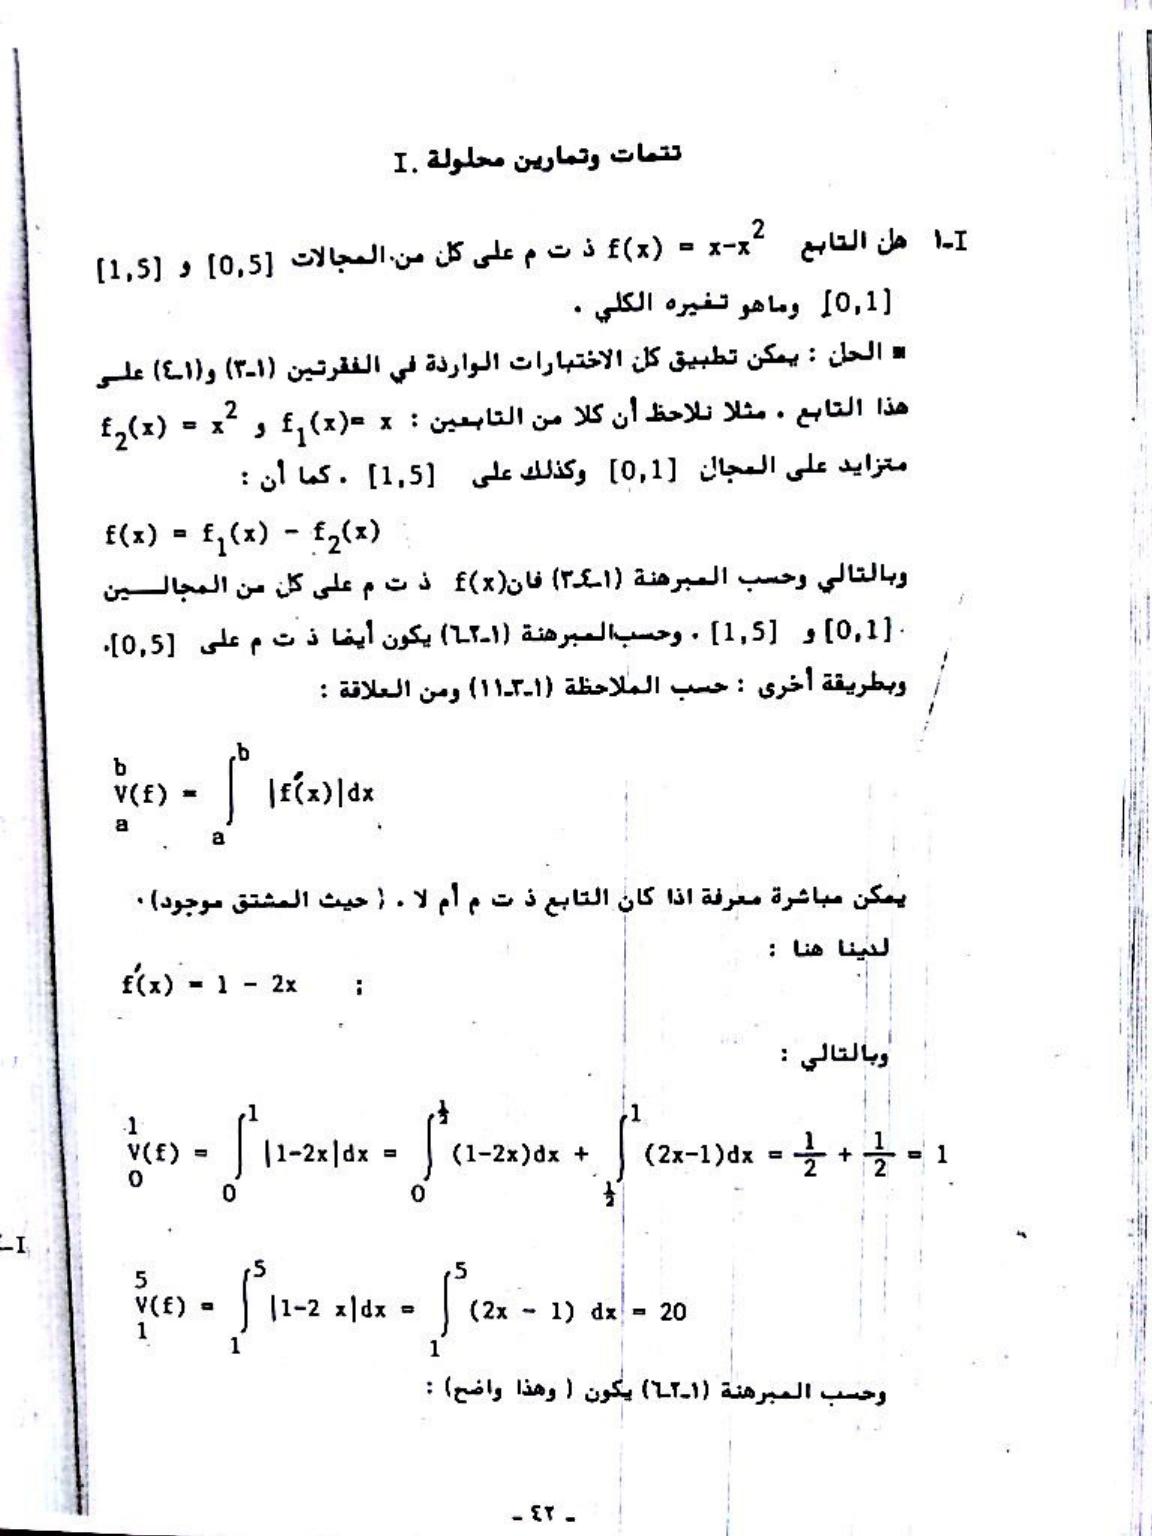 تتمات وتمارين محلولة .I
I-١ هل التابع f(x) = x-x² ذ ت م على كل من المجالات [0,5] و [1,5]
[0,1] وماهو تغيره الكلي .
■ الحل : يمكن تطبيق كل الاختبارات الواردة في الفقرتين (١-٣) و(١-٤) على
هذا التابع . مثلا نلاحظ أن كلا من التابعين : f₁(x)= x و f₂(x) = x²
متزايد على المجال [0,1] وكذلك على [1,5] . كما أن :
f(x) = f₁(x) - f₂(x)
وبالتالي وحسب المبرهنة (١-٤-٣) فان f(x) ذ ت م على كل من المجالـــين
[0,1] و [1,5] . وحسب المبرهنة (١-٢-٦) يكون أيضا ذ ت م على [0,5].
وبطريقة أخرى : حسب الملاحظة (١-٣-١١) ومن العلاقة :
b
V(f) = ∫_a^b |f′(x)|dx
a
يمكن مباشرة معرفة اذا كان التابع ذ ت م أم لا . ( حيث المشتق موجود) .
لدينا هنا :
f′(x) = 1 - 2x ;
وبالتالي :
1
V(f) = ∫_0^1 |1-2x|dx = ∫_0^½ (1-2x)dx + ∫_½^1 (2x-1)dx = 1/2 + 1/2 = 1
0
I-
5
V(f) = ∫_1^5 |1-2 x|dx = ∫_1^5 (2x - 1) dx = 20
1
وحسب المبرهنة (١-٢-٦) يكون ( وهذا واضح) :
- ٤٢ -